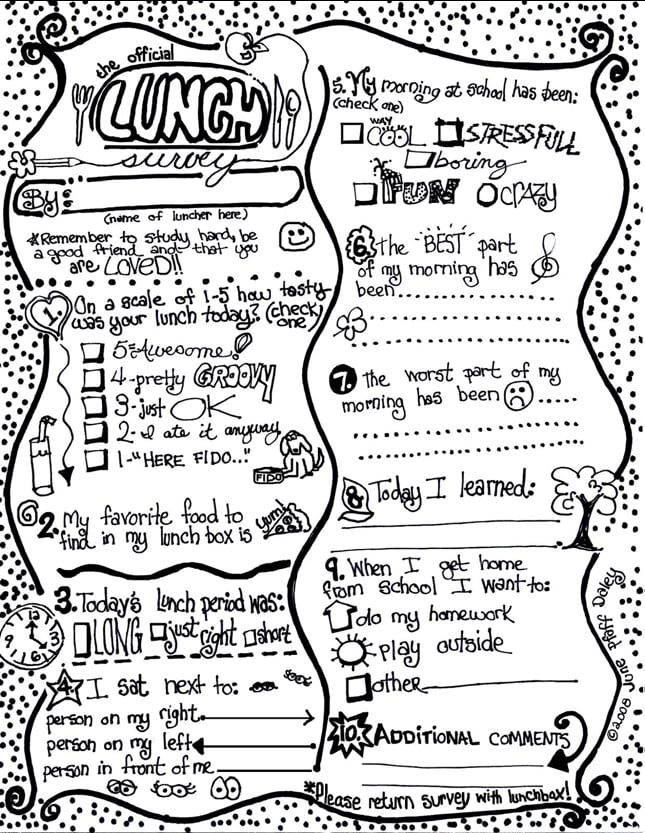 the official
LUNCH
survey
By:
(name of luncher here)
*Remember to study hard, be
a good friend and that you
are LOVED!!
1. On a scale of 1-5 how tasty
was your lunch today? (check
one)
5=Awesome!
4-pretty GROOVY
3-just OK
2-I ate it anyway
1-"HERE FIDO..."
FIDO
2. My favorite food to
find in my lunch box is
yum!
3. Today's lunch period was:
LONG just right short
12 3 6 9
4. I sat next to:
person on my right
person on my left
person in front of me
5. My morning at school has been:
(check one)
WAY
COOL STRESSFULL
boring
FUN CRAZY
6. The "BEST" part
of my morning has
been
7. The worst part of my
morning has been
8. Today I learned:
9. When I get home
from school I want to:
do my homework
play outside
other
10. ADDITIONAL COMMENTS
*Please return survey with lunchbox!
©2008 June Pfaff Daley